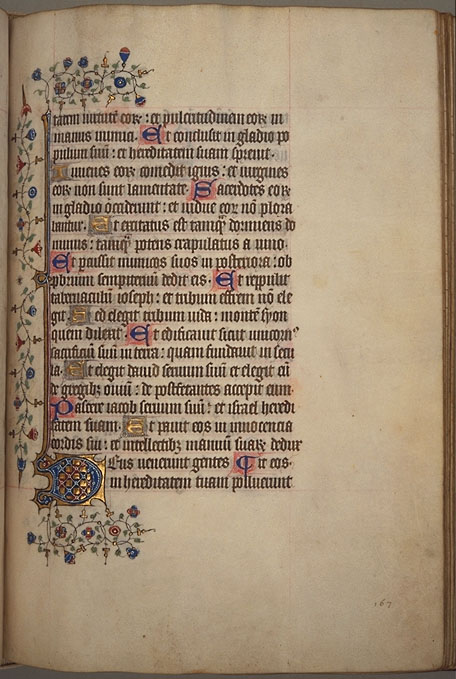 tatem virtutē eoꝝ : et pulcritudinem eoꝝ in
manus inimici. Et conclusit in gladio po
pulum suū : et hereditatem suam spreuit.
Iuuenes eoꝝ comedit ignis : et uirgines
eoꝝ non sunt lamentate. Sacerdotes eoꝝ
in gladio ceciderunt : et uidue eoꝝ nō plora
bantur. Et excitatus est tamqͣ dormiens do
minus : tamqͣ potens crapulatus a uino.
Et percussit inimicos suos in posteriora : ob
probrium sempiternū dedit eis. Et reppulit
tabernaculū ioseph : et tribum effrem nō ele
git. Sed elegit tribum iuda : montē syon
quem dilexit. Et edificauit sicut unicorn
sacrificiū suū in terra : quam fundauit in secu
la. Et elegit dauid seruum suū et elegit eū
de gregibꝫ ouiū : de postfetantes accepit eum.
Pascere iacob seruum suū : et israel heredi
tatem suam. Et pauit eos in innocencia
cordis sui : et intellectibꝫ manuū suaꝝ dedux
Deus uenerunt gentes it eos.
in hereditatem tuam polluerunt
167